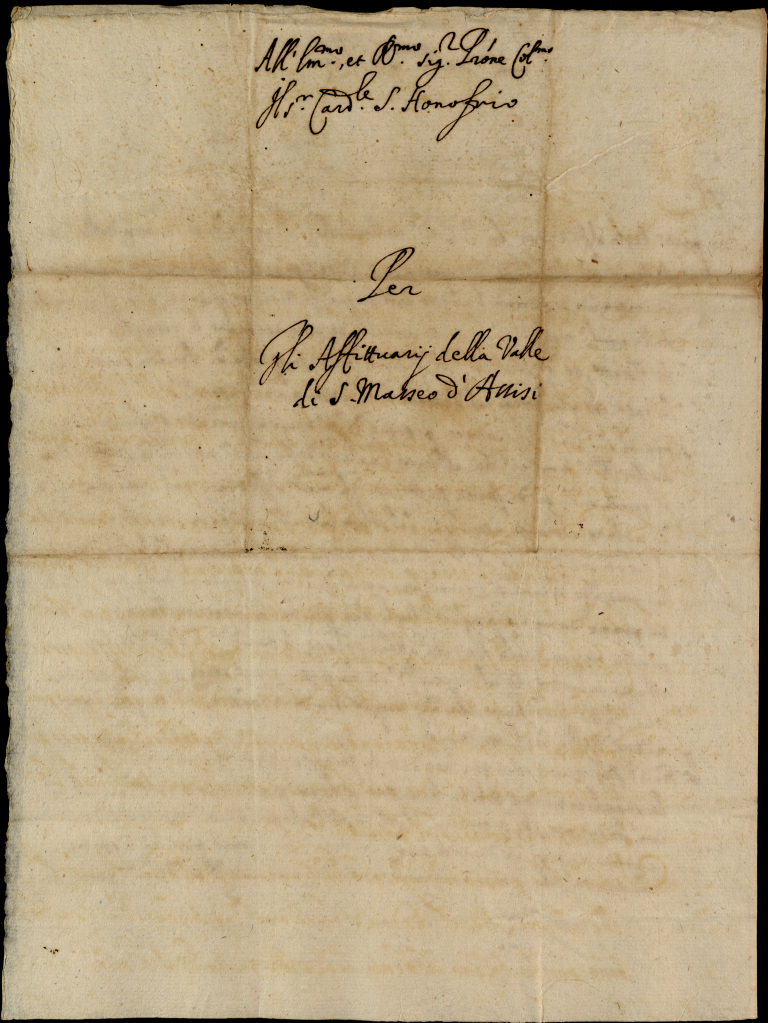 All' Ill.mo, et R.mo Sig.r Prône Col.mo
Il S.r Card.le S. Honofrio
Per
Gli Affittuarij della Valle
di S. Masseo d'Assisi